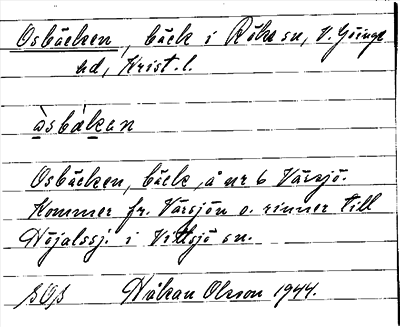 Osbäcken, bäck i Röke sn, V. Göinge
hd, Krist. l.
òsbækan
Osbäcken, bäck, å nr 6 Värsjö.
Kommer fr. Värsjön o. rinner till
Höjalssj. i Vittsjö sn.
Håkan Olsson 1944.